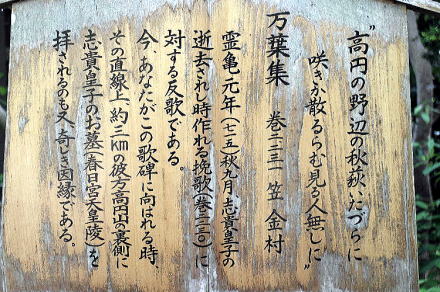 "高円の野辺の秋萩いたづらに
咲きか散るらむ見る人無しに"
万葉集 巻二-二三一 笠 金村
霊亀元年(七一五)秋九月、志貴皇子の
逝去され時作れる挽歌(巻二-二三〇)に
対する反歌である。
今、あなたがこの歌碑に向はれる時、
その直線上、約三kmの彼方高円山の裏側に
志貴皇子のお墓(春日宮天皇陵)を
拝されるのも又奇しき因縁である。